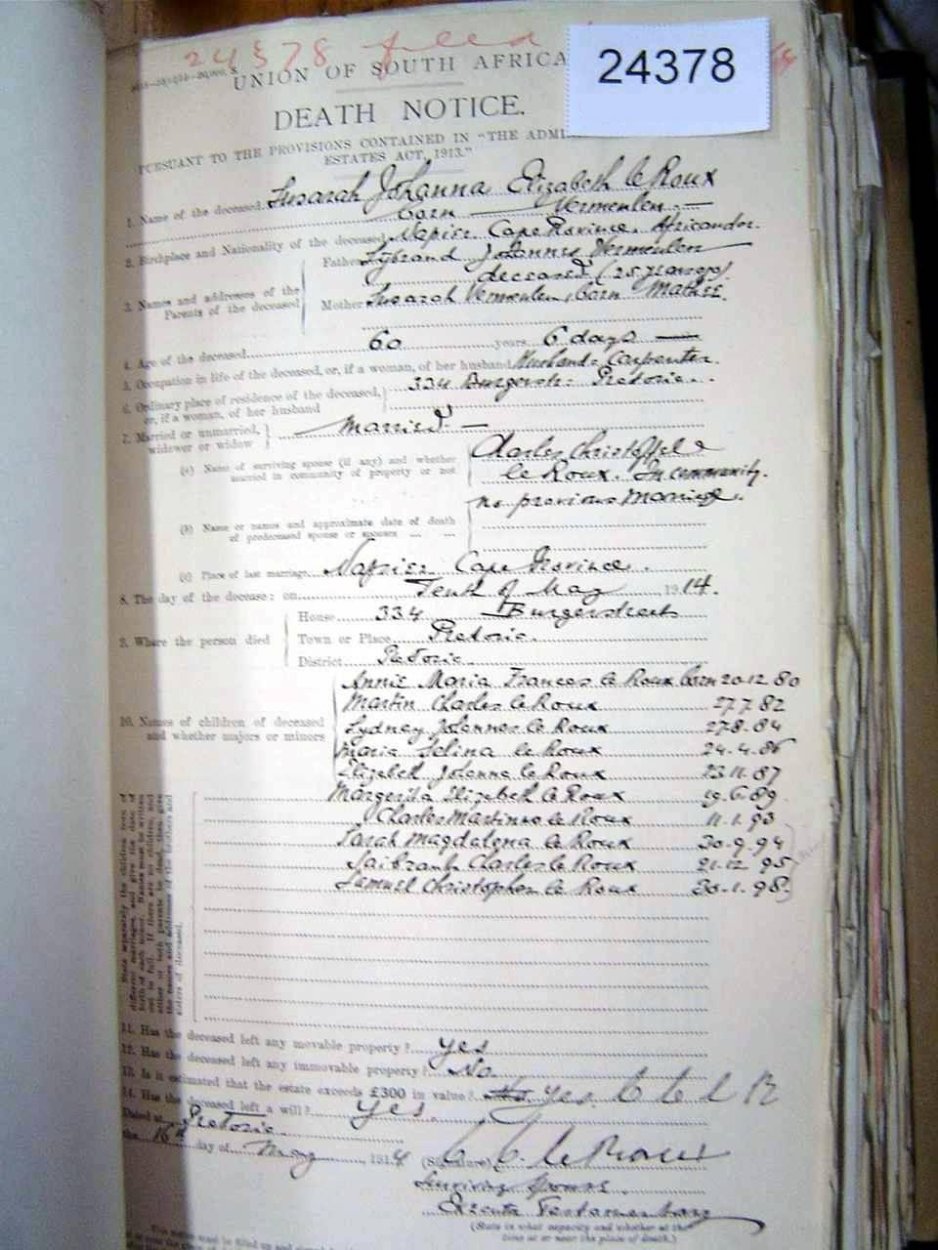 24378 filed
24378
UNION OF SOUTH AFRICA
DEATH NOTICE.
PURSUANT TO THE PROVISIONS CONTAINED IN "THE ADMI
ESTATES ACT, 1913."
1. Name of the deceased Susarah Johanna Elizabeth le Roux
born Vermeulen.—
2. Birthplace and Nationality of the deceased Napier Cape Province. Africander.
3. Names and addresses of the Parents of the deceased
Father Sybrand Johannes Vermeulen
deceased (25 years ago)
Mother Susarah Vermeulen, born Mathee.
4. Age of the deceased 60 years 6 days —
5. Occupation in life of the deceased, or, if a woman, of her husband Husband: Carpenter.
6. Ordinary place of residence of the deceased, or, if a woman, of her husband 334 Burgerstr: Pretoria.
7. Married or unmarried, widower or widow Married —
(a) Name of surviving spouse (if any) and whether married in community of property or not
Charles Christoffel
le Roux. In community.
no previous Marriage.
(b) Name or names and approximate date of death of predeceased spouse or spouses ... ...
(c) Place of last marriage Napier Cape Province.
8. The day of the decease: on Tenth of May 1914.
9. Where the person died
House 334 Burgerstreet
Town or Place Pretoria.
District Pretoria.
10. Names of children of deceased and whether majors or minors
Annie Maria Frances le Roux born 20.12.80
Martin Charles le Roux 27.7.82
Sydney Johannes le Roux 27.8.84
Maria Selina le Roux 24.4.86
Elizabeth Johanna le Roux 23.11.87
Margerita Elizabeth le Roux 19.6.89
Charles Martinus le Roux 11.1.93
Sarah Magdalena le Roux 30.9.94
Saibrank Charles le Roux 21.12.95
Samuel Christopher le Roux 30.1.98
11. Has the deceased left any movable property? Yes
12. Has the deceased left any immovable property? No.
13. Is it estimated that the estate exceeds £300 in value? Yes. C C l R
14. Has the deceased left a will? Yes.
Dated at Pretoria
the 16th day of May 1914
(Signature) C. C. le Roux
Surviving Spouse.
Executor Testamentary
(State in what capacity and whether at the time at or near the place of death.)